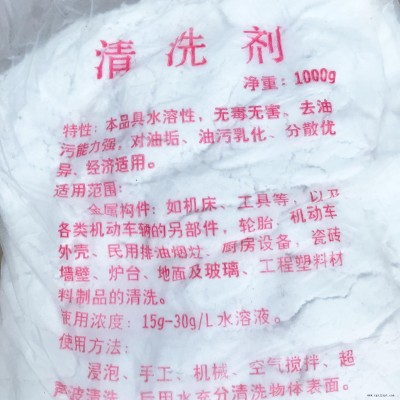 清洗剂
净重：1000g
特性：本品具水溶性，无毒无害、去油
污能力强，对油垢、油污乳化、分散优
异、经济适用。
适用范围：
金属构件：如机床、工具等，以及
各类机动车辆的另部件，轮胎、机动车
外壳、民用排油烟灶、厨房设备，瓷砖
墙壁、炉台、地面及玻璃、工程塑料材
料制品的清洗。
使用浓度：15g-30g/L水溶液。
使用方法：
浸泡、手工、机械、空气搅拌、超
声波清洗，后用水充分清洗物体表面。